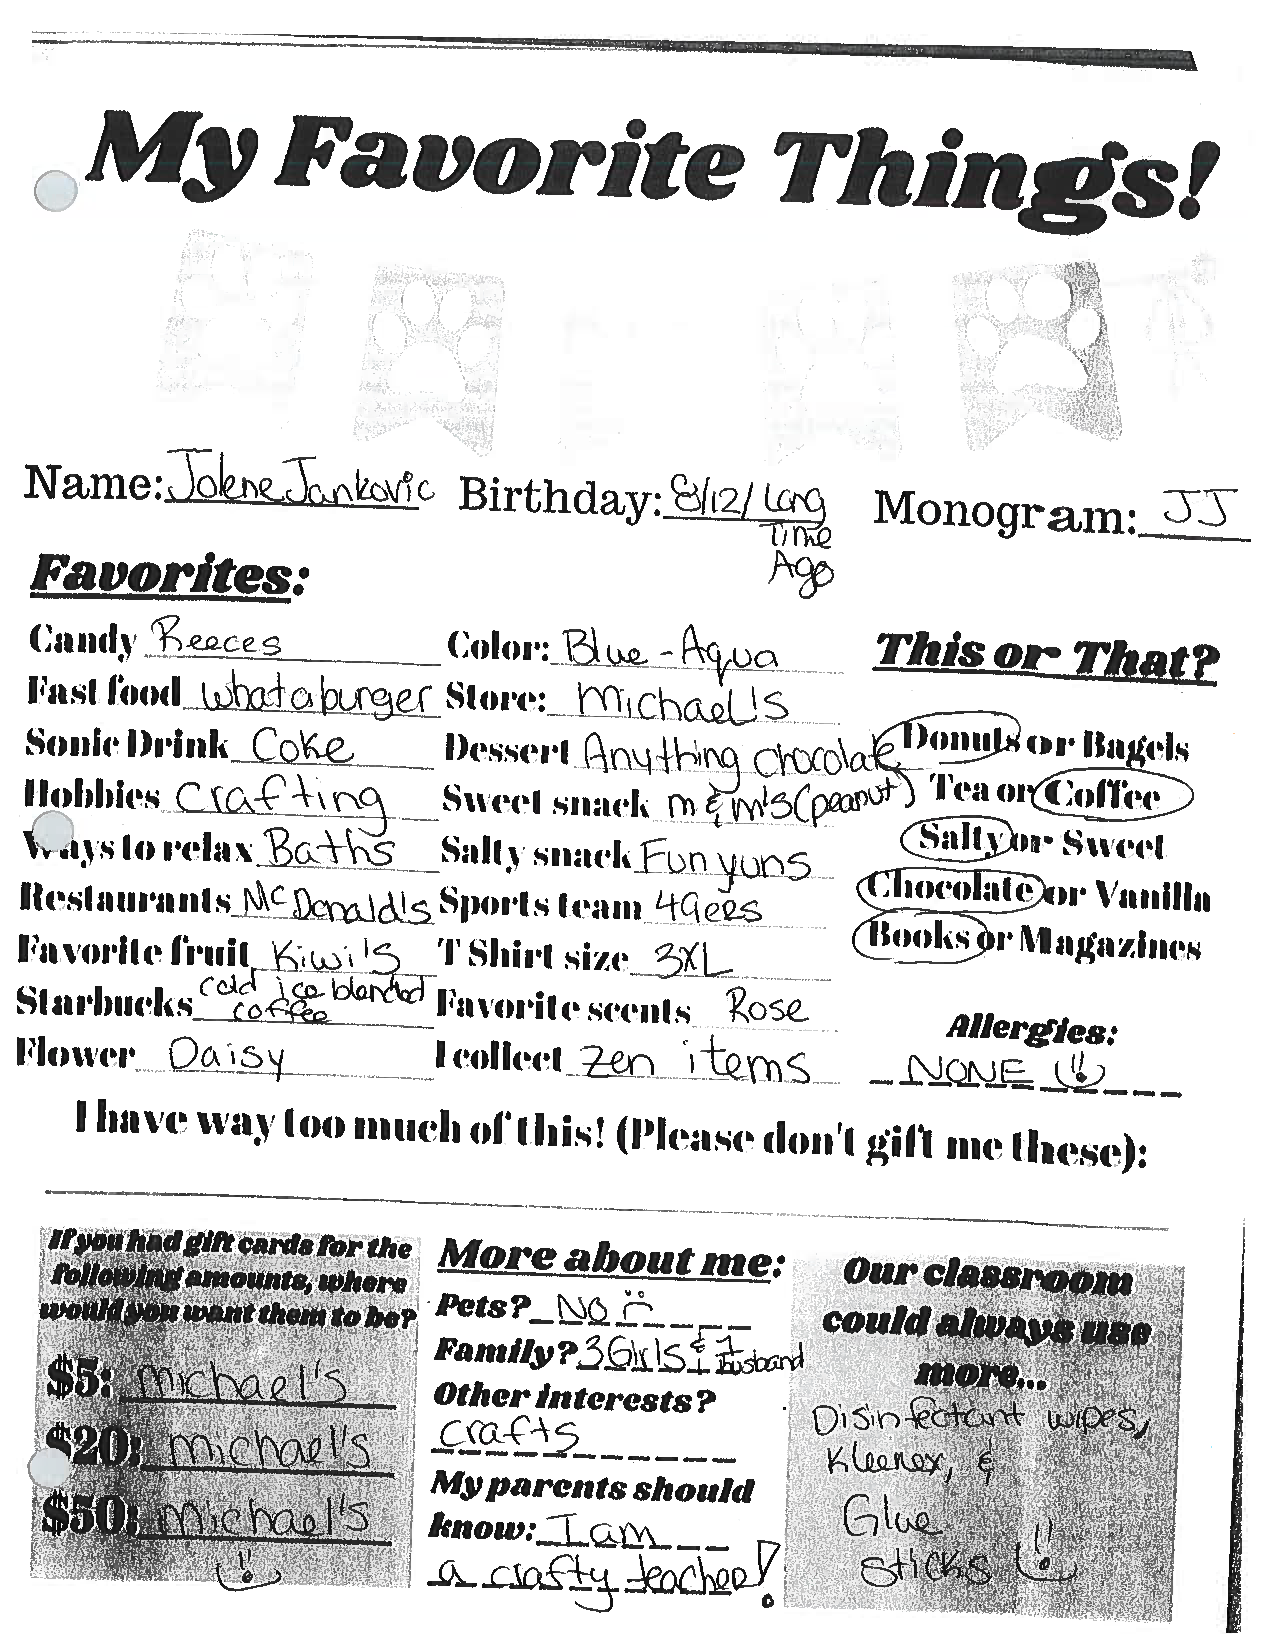 My Favorite Things!
Name: Jolene Jankovic Birthday: 8/12/ Long Time Ago Monogram: JJ
Favorites:
Candy Reeces
Fast food whataburger
Sonic Drink Coke
Hobbies crafting
Ways to relax Baths
Restaurants McDonald's
Favorite fruit Kiwi's
Starbucks cold ice blended coffee
Flower Daisy
Color: Blue - Aqua
Store: Michael's
Dessert Anything chocolate
Sweet snack m & m's (peanut)
Salty snack Funyuns
Sports team 49ers
T Shirt size 3XL
Favorite scents Rose
I collect zen items
This or That?
Donuts or Bagels
Tea or Coffee
Salty or Sweet
Chocolate or Vanilla
Books or Magazines
Allergies:
NONE
I have way too much of this! (Please don't gift me these):
If you had gift cards for the
following amounts, where
would you want them to be?
$5: Michael's
$20: Michael's
$50: Michael's
More about me:
Pets? No
Family? 3 Girls & 1 Husband
Other interests?
crafts
My parents should
know: I am
a crafty teacher!
Our classroom
could always use
more...
Disinfectant wipes,
Kleenex, &
Glue
sticks